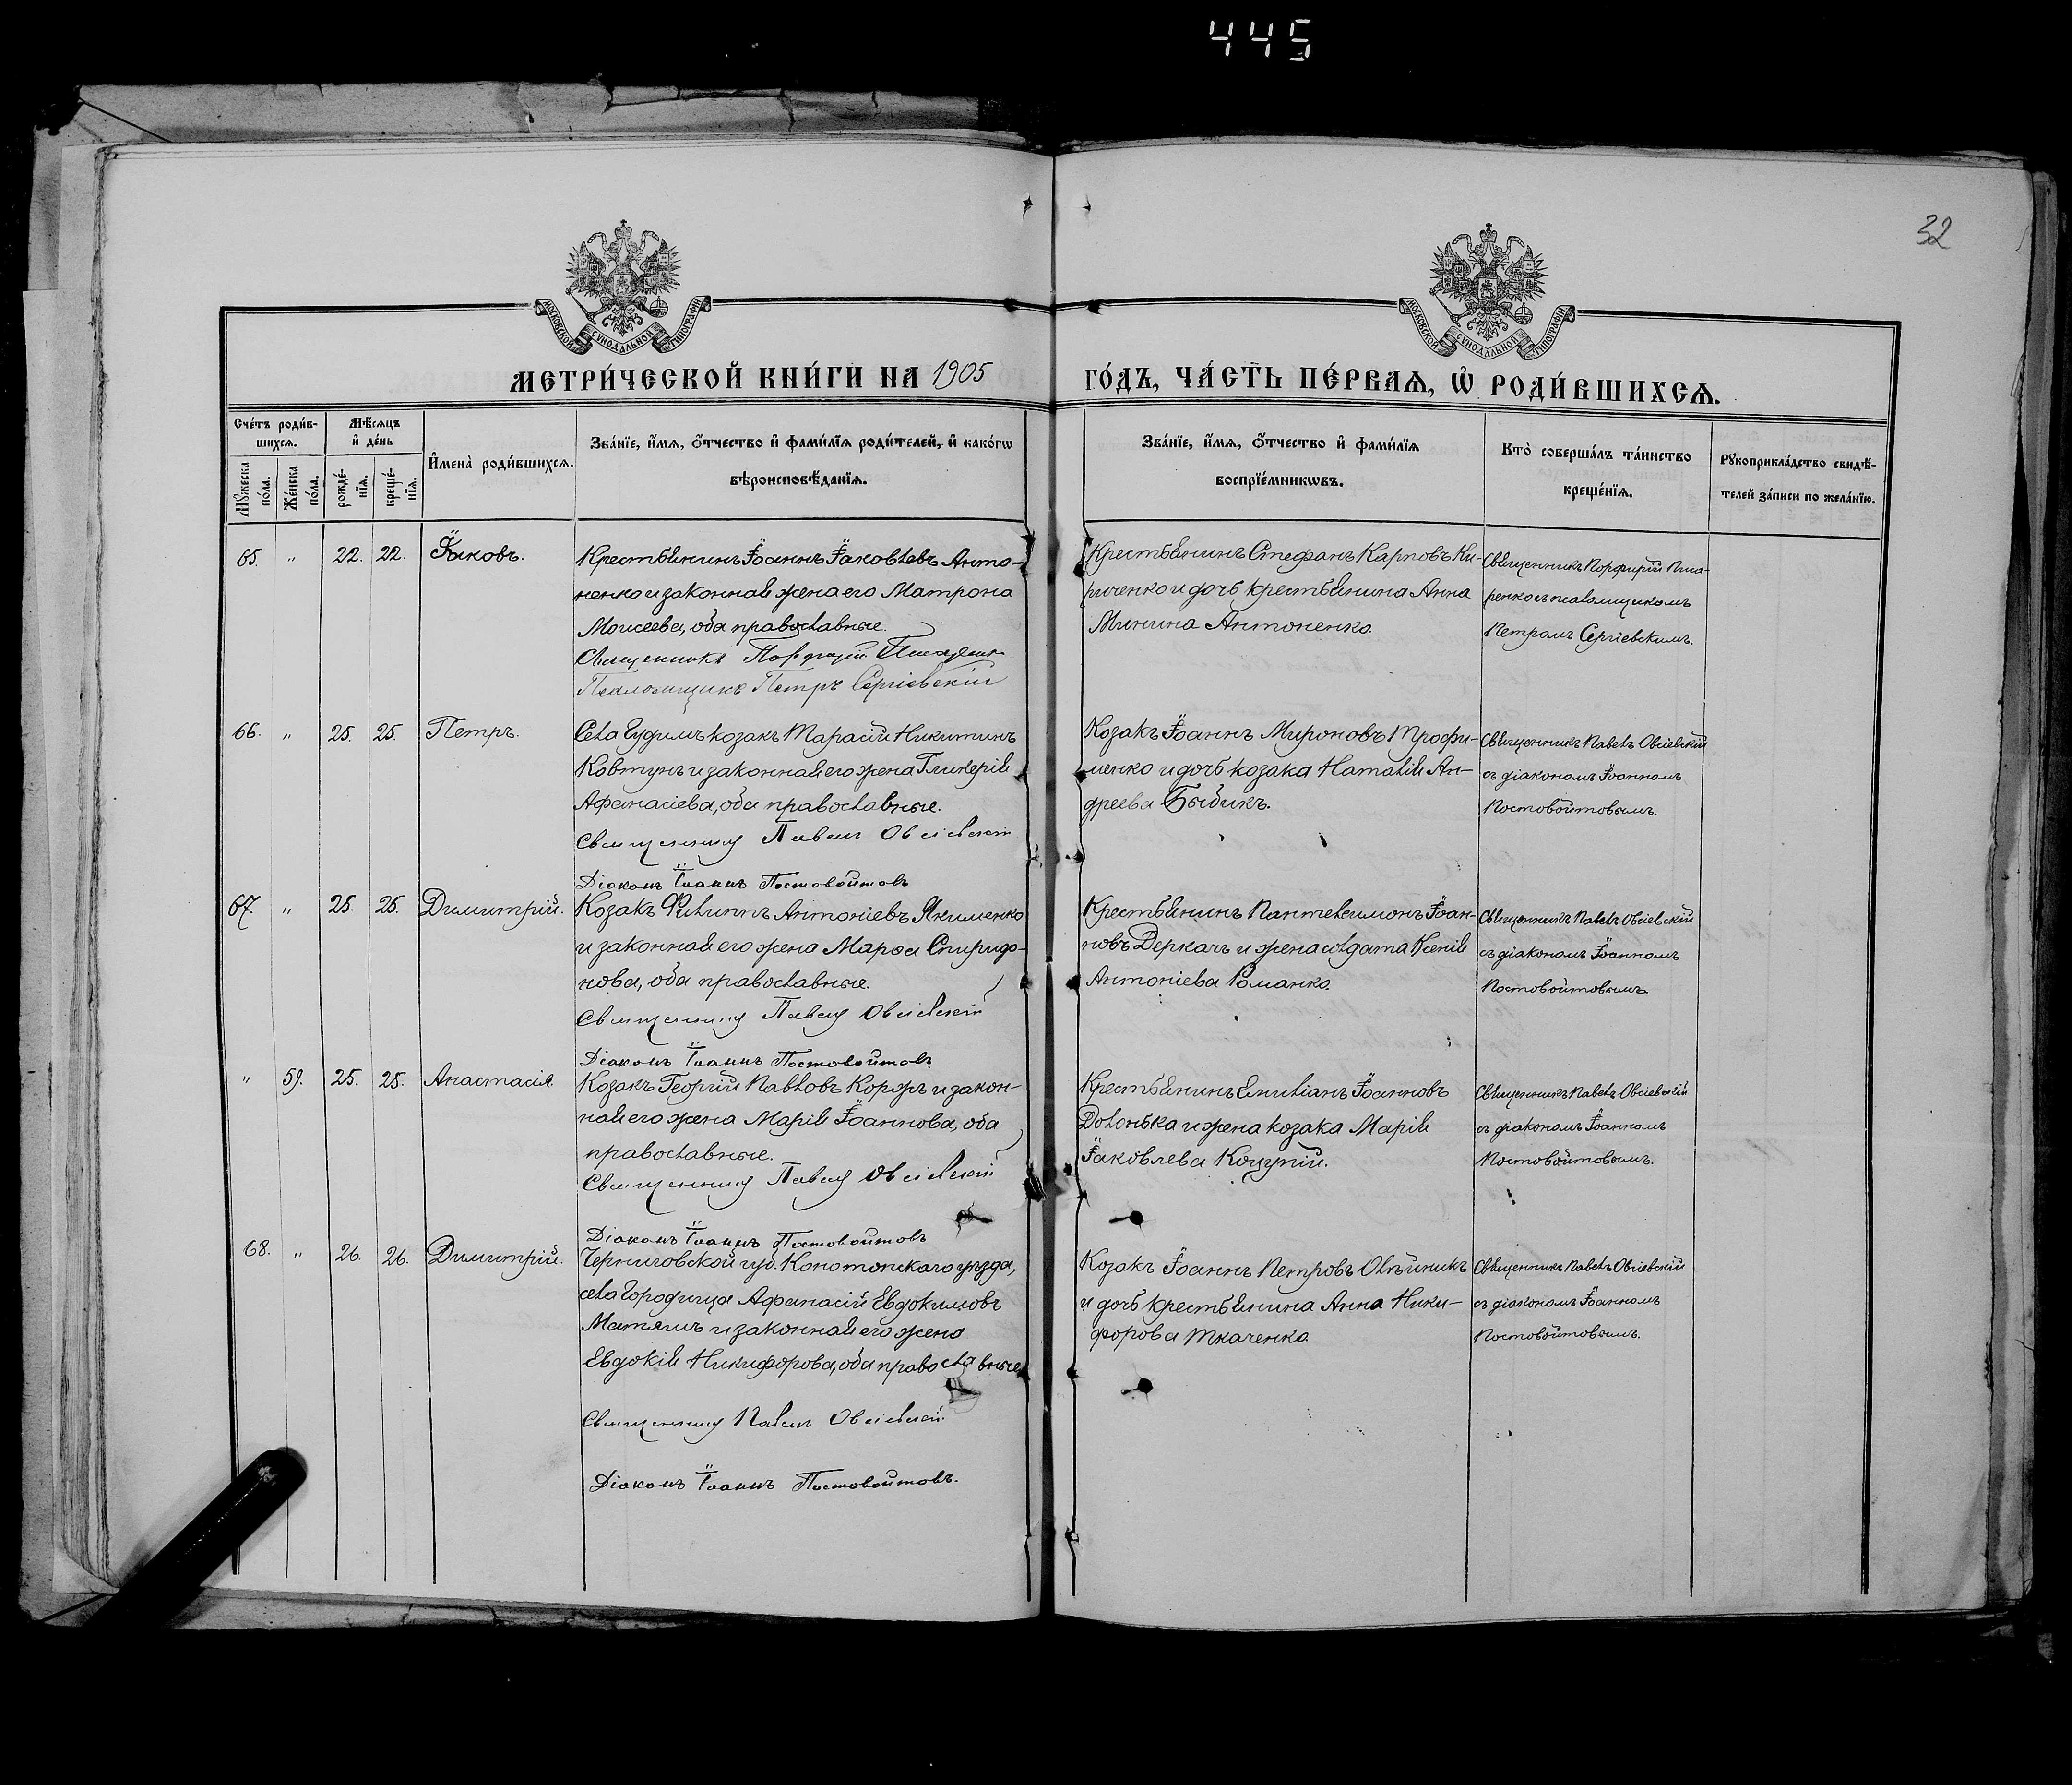 445
32
МОСКОВСКОЙ СѴНОДАЛЬНОЙ ТИПОГРАФІИ
МОСКОВСКОЙ СѴНОДАЛЬНОЙ ТИПОГРАФІИ
МЕТРИ́ЧЕСКОЙ КНИ́ГИ НА 1905
ГО́ДЪ, ЧА́СТЬ ПЕ́РВАѦ, Ѡ҆ РОДИ́ВШИХСѦ.
Сче́тъ роди́в-
шихсѧ.
Мѣ́сѧцъ
и҆ де́нь
Мꙋ́жеска по́ла.
Же́нска по́ла.
рожде́-
нїѧ.
креще́-
нїѧ.
И҆мена̀ роди́вшихсѧ.
Зва́нїе, и҆́мѧ, ѻ҆́тчество и҆ фами́лїѧ роди́телей, и҆ како́гѡ
вѣроисповѣ́данїѧ.
Зва́нїе, и҆́мѧ, ѻ҆́тчество и҆ фами́лїѧ
воспрїе́мникѡвъ.
Кто̀ соверша́лъ та́инство
креще́нїѧ.
Рꙋкоприкла́дство свидѣ́-
телей за́писи по жела́нїю.
65. " 22. 22. Іаковъ.
Крестьянинъ Іоаннъ Іаковлевъ Анто-
ненко и законная жена его Матрона
Моисеева, оба православные.
Священникъ Порфирій Писаренко
Псаломщикъ Петръ Сергіевскій
Крестьянинъ Стефанъ Карповъ Ки-
риченко и дочь крестьянина Анна
Минина Антоненко.
Священникъ Порфирій Писа-
ренко съ псаломщикомъ
Петромъ Сергіевскимъ.
66. " 25. 25. Петръ.
Села Гудимъ козакъ Тарасій Никитинъ
Ковтунъ и законная его жена Гликерія
Афанасіева, оба православные.
Священникъ Павелъ Овсіевскій
Діаконъ Іоаннъ Постовойтовъ
Козакъ Іоаннъ Мироновъ Трофи-
менко и дочь козака Наталія Ан-
дреева Быдикъ.
Священникъ Павелъ Овсіевскій
съ діакономъ Іоанномъ
Постовойтовымъ.
67. " 25. 25. Димитрій.
Козакъ Филиппъ Антоніевъ Якименко
и законная его жена Марѳа Спиридо-
нова, оба православные.
Священникъ Павелъ Овсіевскій
Діаконъ Іоаннъ Постовойтовъ
Крестьянинъ Пантелеимонъ Іоан-
новъ Деркачъ и жена солдата Ксенія
Антоніева Романко.
Священникъ Павелъ Овсіевскій
съ діакономъ Іоанномъ
Постовойтовымъ
" 59. 25. 25. Анастасія.
Козакъ Георгій Павловъ Коржъ и закон-
ная его жена Марія Іоаннова, оба
православные.
Священникъ Павелъ Овсіевскій
Діаконъ Іоаннъ Постовойтовъ
Крестьянинъ Емиліанъ Іоанновъ
Долонька и жена козака Марія
Іаковлева Коцупій.
Священникъ Павелъ Овсіевскій
съ діакономъ Іоанномъ
Постовойтовымъ.
68. " 26. 26. Димитрій.
Черниговской губ. Конотопскаго уѣзда,
села Городища Афанасій Евдокимовъ
Матяшъ и законная его жена
Евдокія Никифорова, оба православные
Священникъ Павелъ Овсіевскій
Діаконъ Іоаннъ Постовойтовъ.
Козакъ Іоаннъ Петровъ Олѣйникъ
и дочь крестьянина Анна Ники-
форова Ткаченко
Священникъ Павелъ Овсіевскій
съ діакономъ Іоанномъ
Постовойтовымъ.